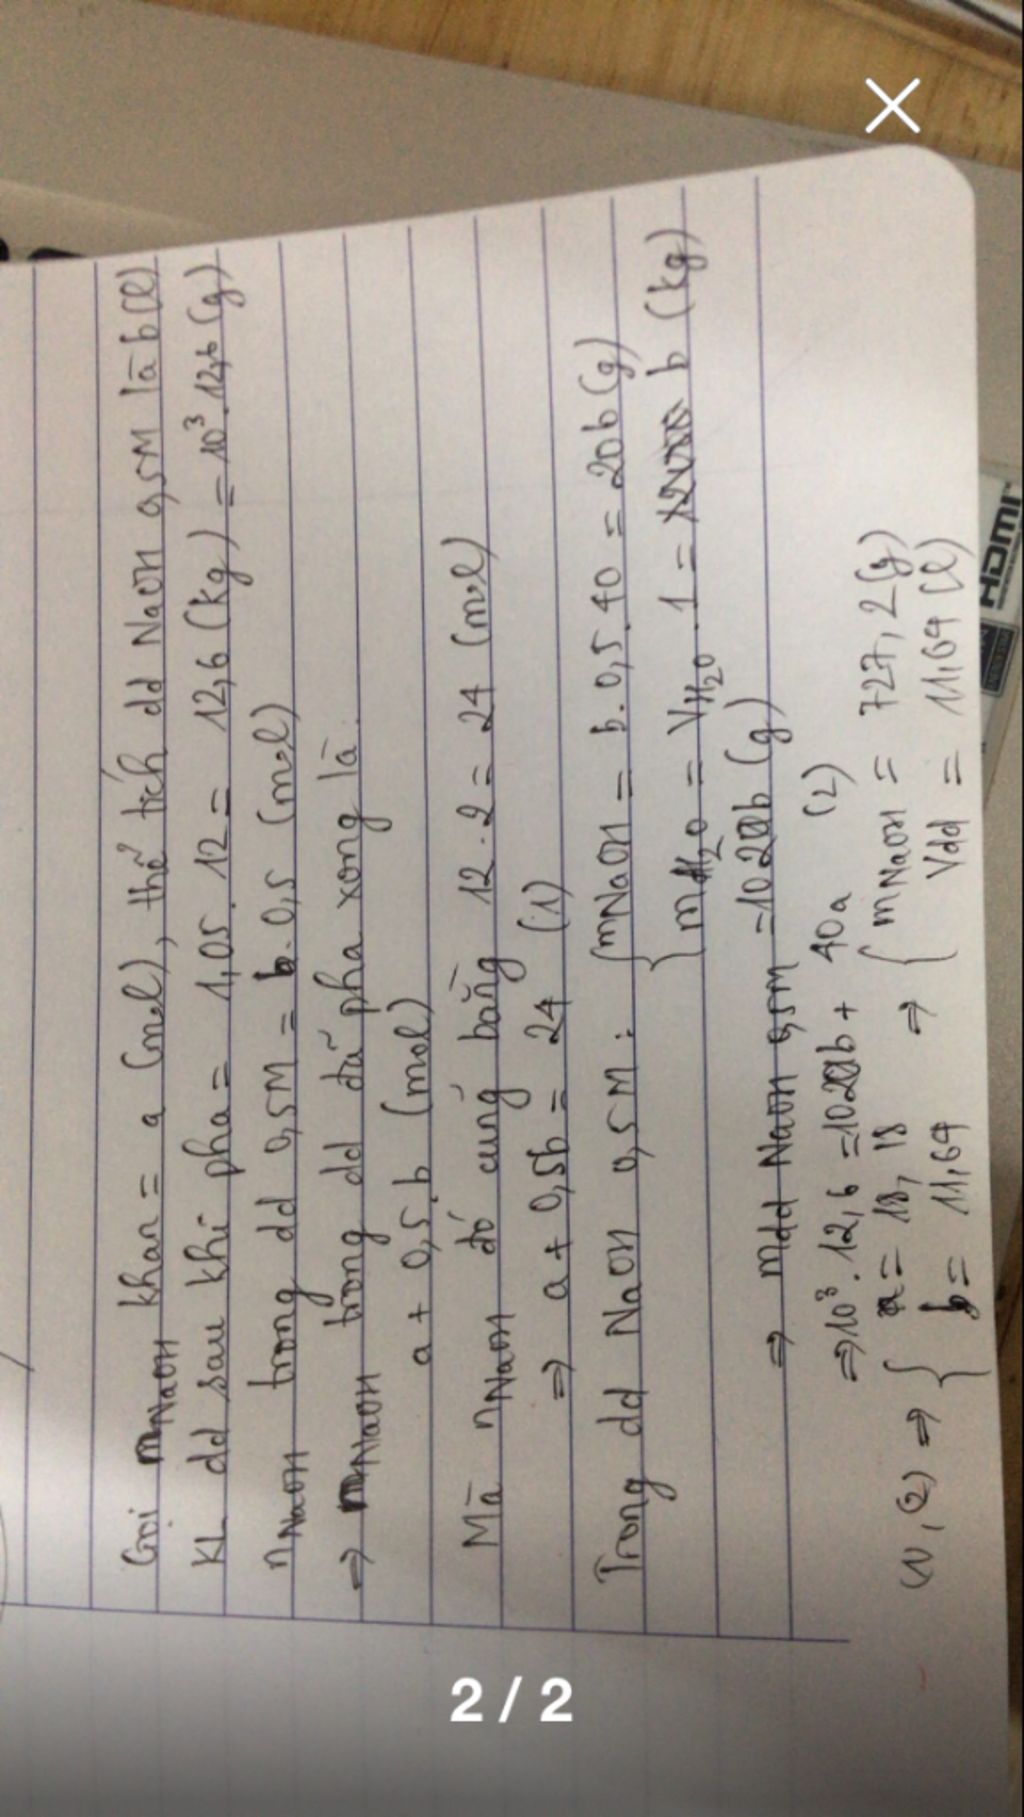 Gọi nNaOH khan = a (mol), thể tích dd NaOH 0,5M là b (l)
KL dd sau khi pha = 1,05. 12 = 12,6 (kg) = 10³. 12,6 (g)
nNaOH trong dd 0,5M = b. 0,5 (mol)
⇒ nNaOH trong dd đã pha xong là
a + 0,5.b (mol)
Mà nNaOH đó cũng bằng 12 . 2 = 24 (mol)
⇒ a + 0,5b = 24 (1)
Trong dd NaOH 0,5M : { mNaOH = b. 0,5. 40 = 20b (g)
mH2O = VH2O . 1 = b (kg)
⇒ mdd NaOH 0,5M = 1020b (g)
⇒ 10³. 12,6 = 1020b + 40a (2)
(1), (2) ⇒ { a = 18, 18 ⇒ { mNaOH = 727, 2 (g)
b = 11,64 Vdd = 11,64 (l)
HDMI
2 / 2